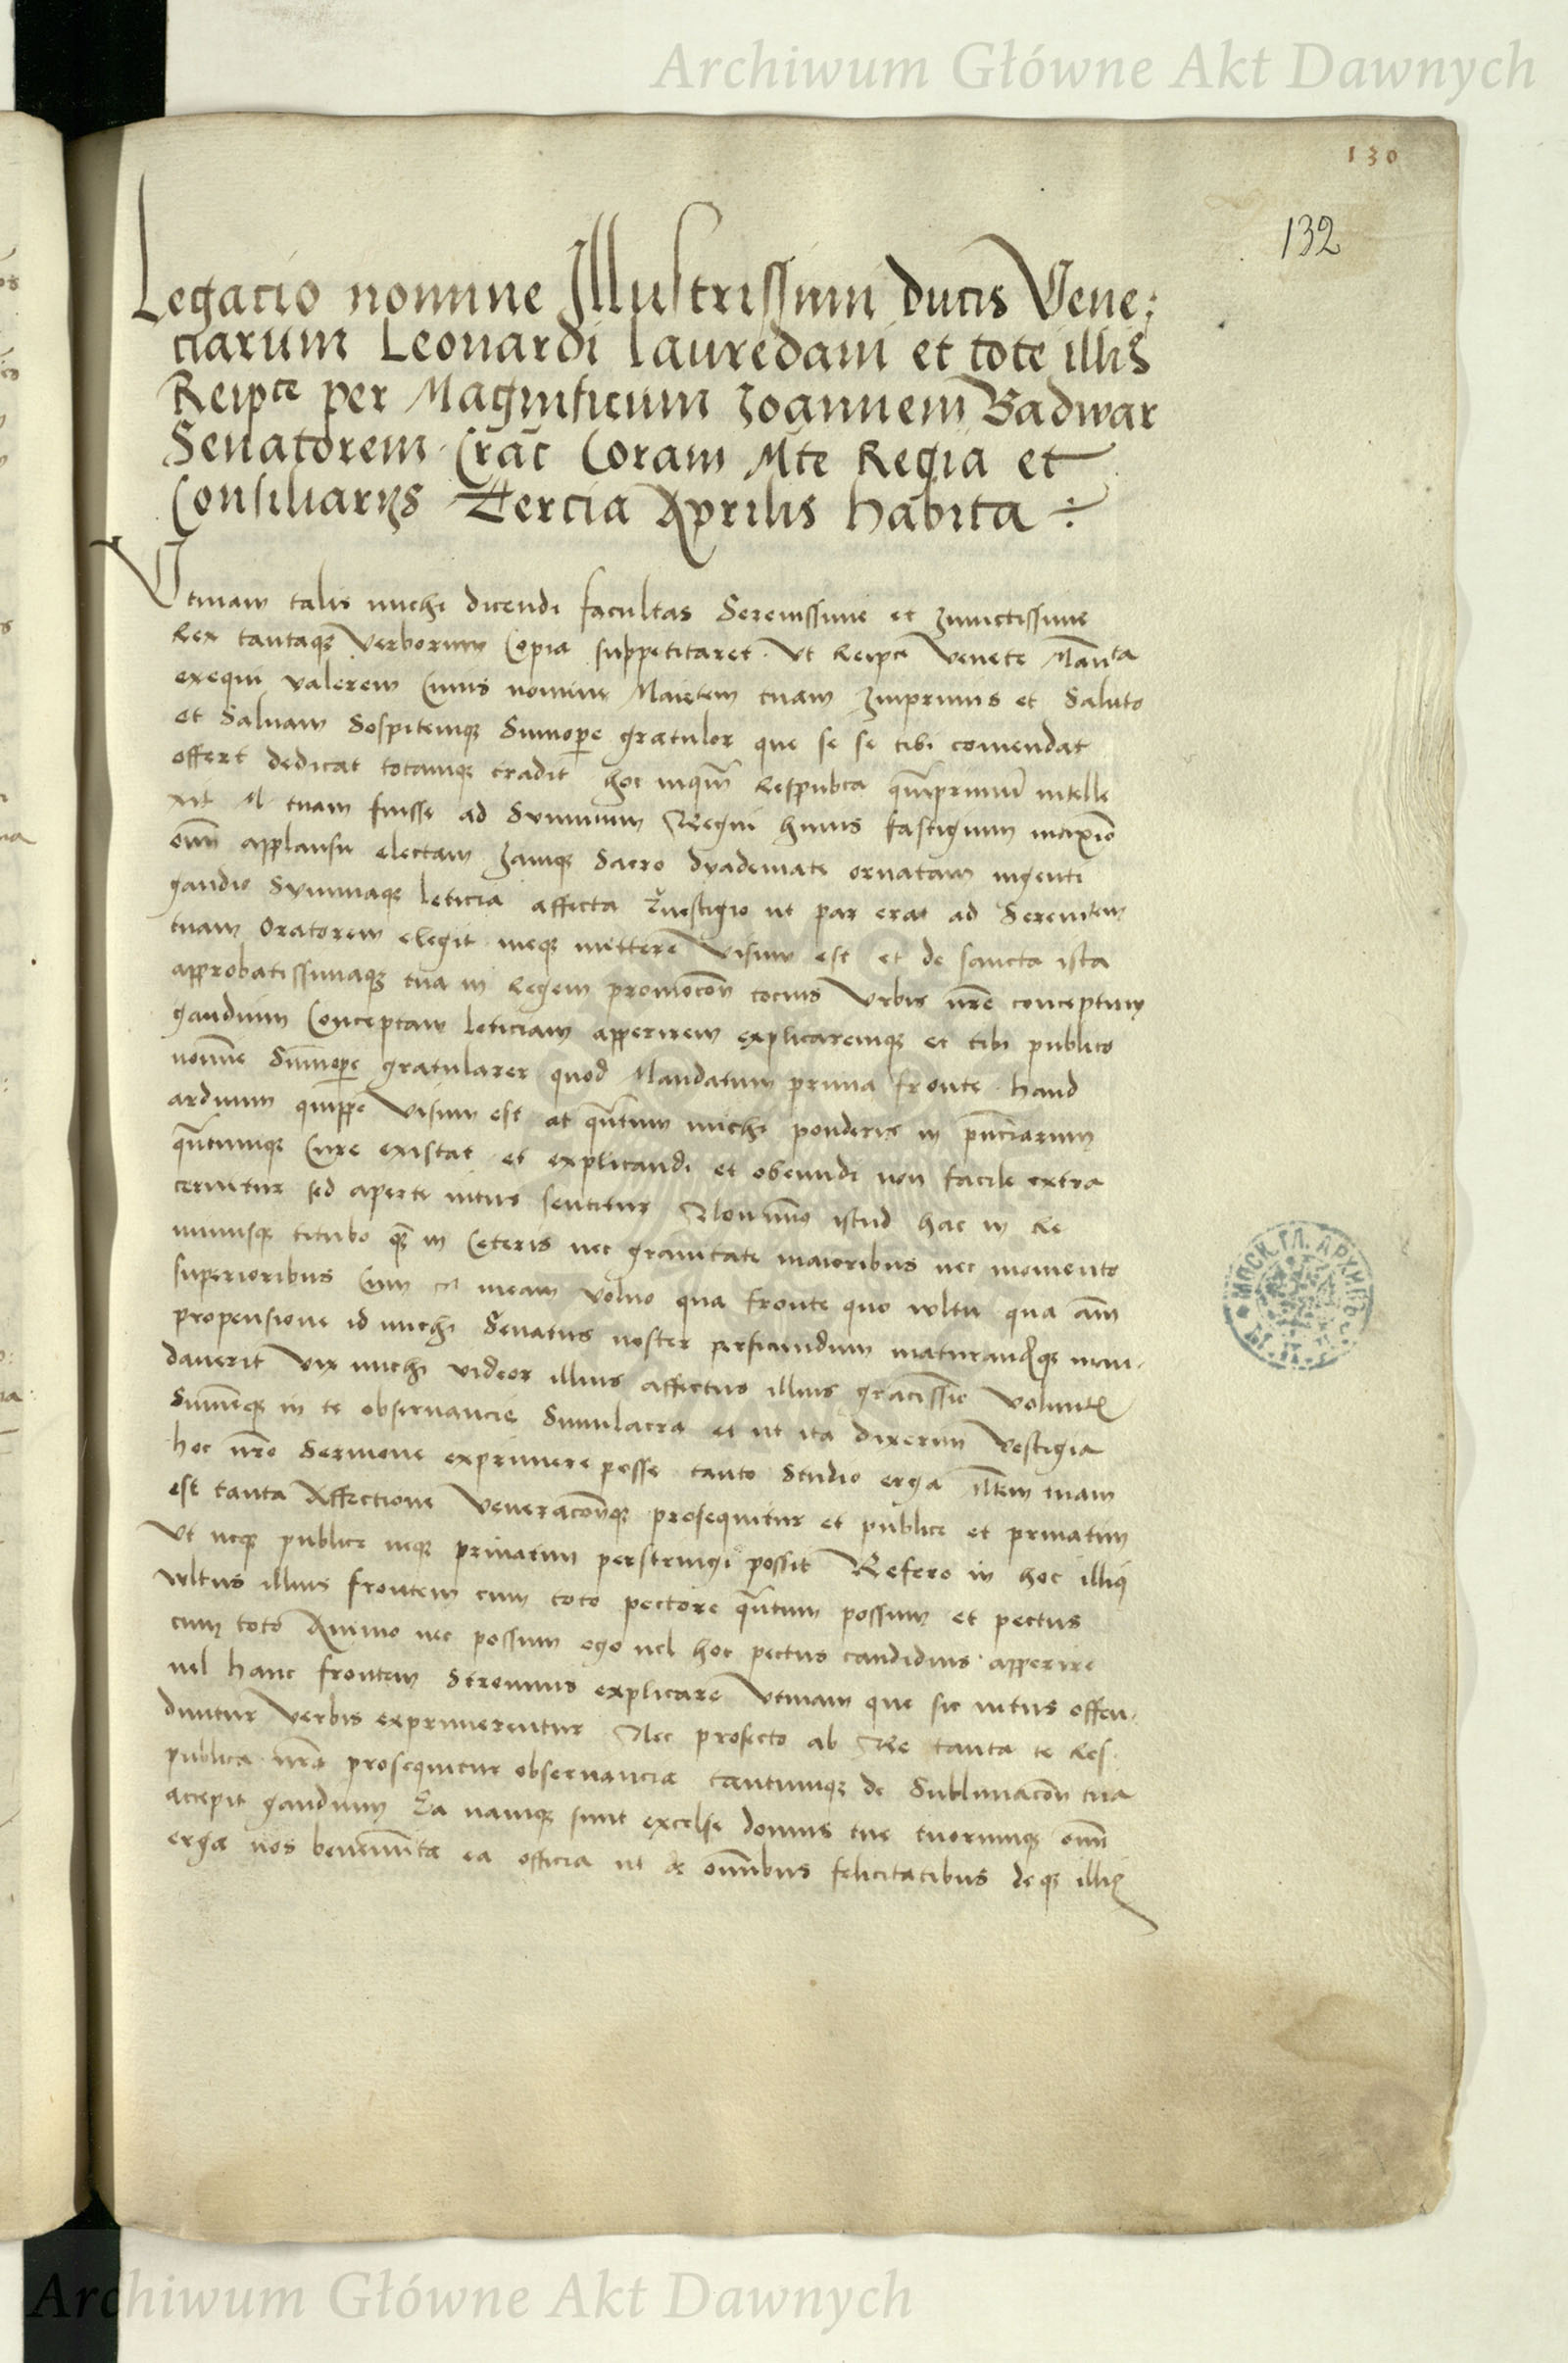 Archiwum Główne Akt Dawnych
130
132
Legacio nomine Illustrissimi ducis Vene:
ciarum Leonardi lauredani et tote illis
Reipce per Magnificum Joannem Badwar
Senatorem Crac Coram Mte Regia et
Consiliarijs Tercia Aprilis habita ÷
Utinam talis michi dicendi facultas Serenissime et Invictissime
Rex tantaque verborum Copia suppetitaret Ut Reipce Venete Manta
exequi valerem Cuius nomine Maiestem tuam Imprimis et Saluto
et Saluam Sospitemque Summopere gratulor que se se tibi comendat
offert dedicat totamque tradit hoc inquam Respubca quamprimum intelle
xit M tuam fuisse ad Summum Regni huius fastigium maximo
omni applausu electam Jamque Sacro dyademate ornatam ingenti
gaudio Summaque leticia affecta Evestigio ut par erat ad Serenitem
tuam Oratorem elegit meque mittere Visum est et de sancta ista
approbatissimaque tua in Regem promocon tocius Urbis nre conceptum
gaudium Conceptam leticiam apperirem explicaremque et tibi publico
nomine Summopere gratularer quod Mandatum prima fronte haud
arduum quippe Visum est at quantum michi ponderis in
quantumque Cure existat et explicandi et obeundi non facile extra
cernitur sed aperte intus sentitur Non uno istud hac in Re
minusque titubo quam in Ceteris nec gravitate maioribus nec momento
superioribus Cum meam volvo qua fronte quo vultu qua
propensione id michi Senatus noster perficiundum maturandque man-
daverit Vix michi videor illius affectus illius gratissime
Summeque in te observancie Simulacra et ut ita dixerim Vestigia
hoc nro Sermone exprimere posse tanto Studio erga tuam
est tanta Affectione Veneraconque prosequitur et publice et privatim
Ut neque publice neque privatim perstringi possit Refero in hoc illius
vultus illius frontem cum toto pectore quantum possum et pectus
cum toto Animo nec possum ego vel hoc pectus candidius apperire
vel hanc frontem Strenuius explicare Utinam que sic intus
Verbis exprimerentur Nec profecto ab Re tanta te Res-
publica nra prosequitur observancia tantumque de Sublimacon tua
accepit gaudium Ea namque sunt excelse domus tue tuorumque omni
erga nos benemerita ea officia ut de omnibus felicitatibus deque illis
Archiwum Główne Akt Dawnych